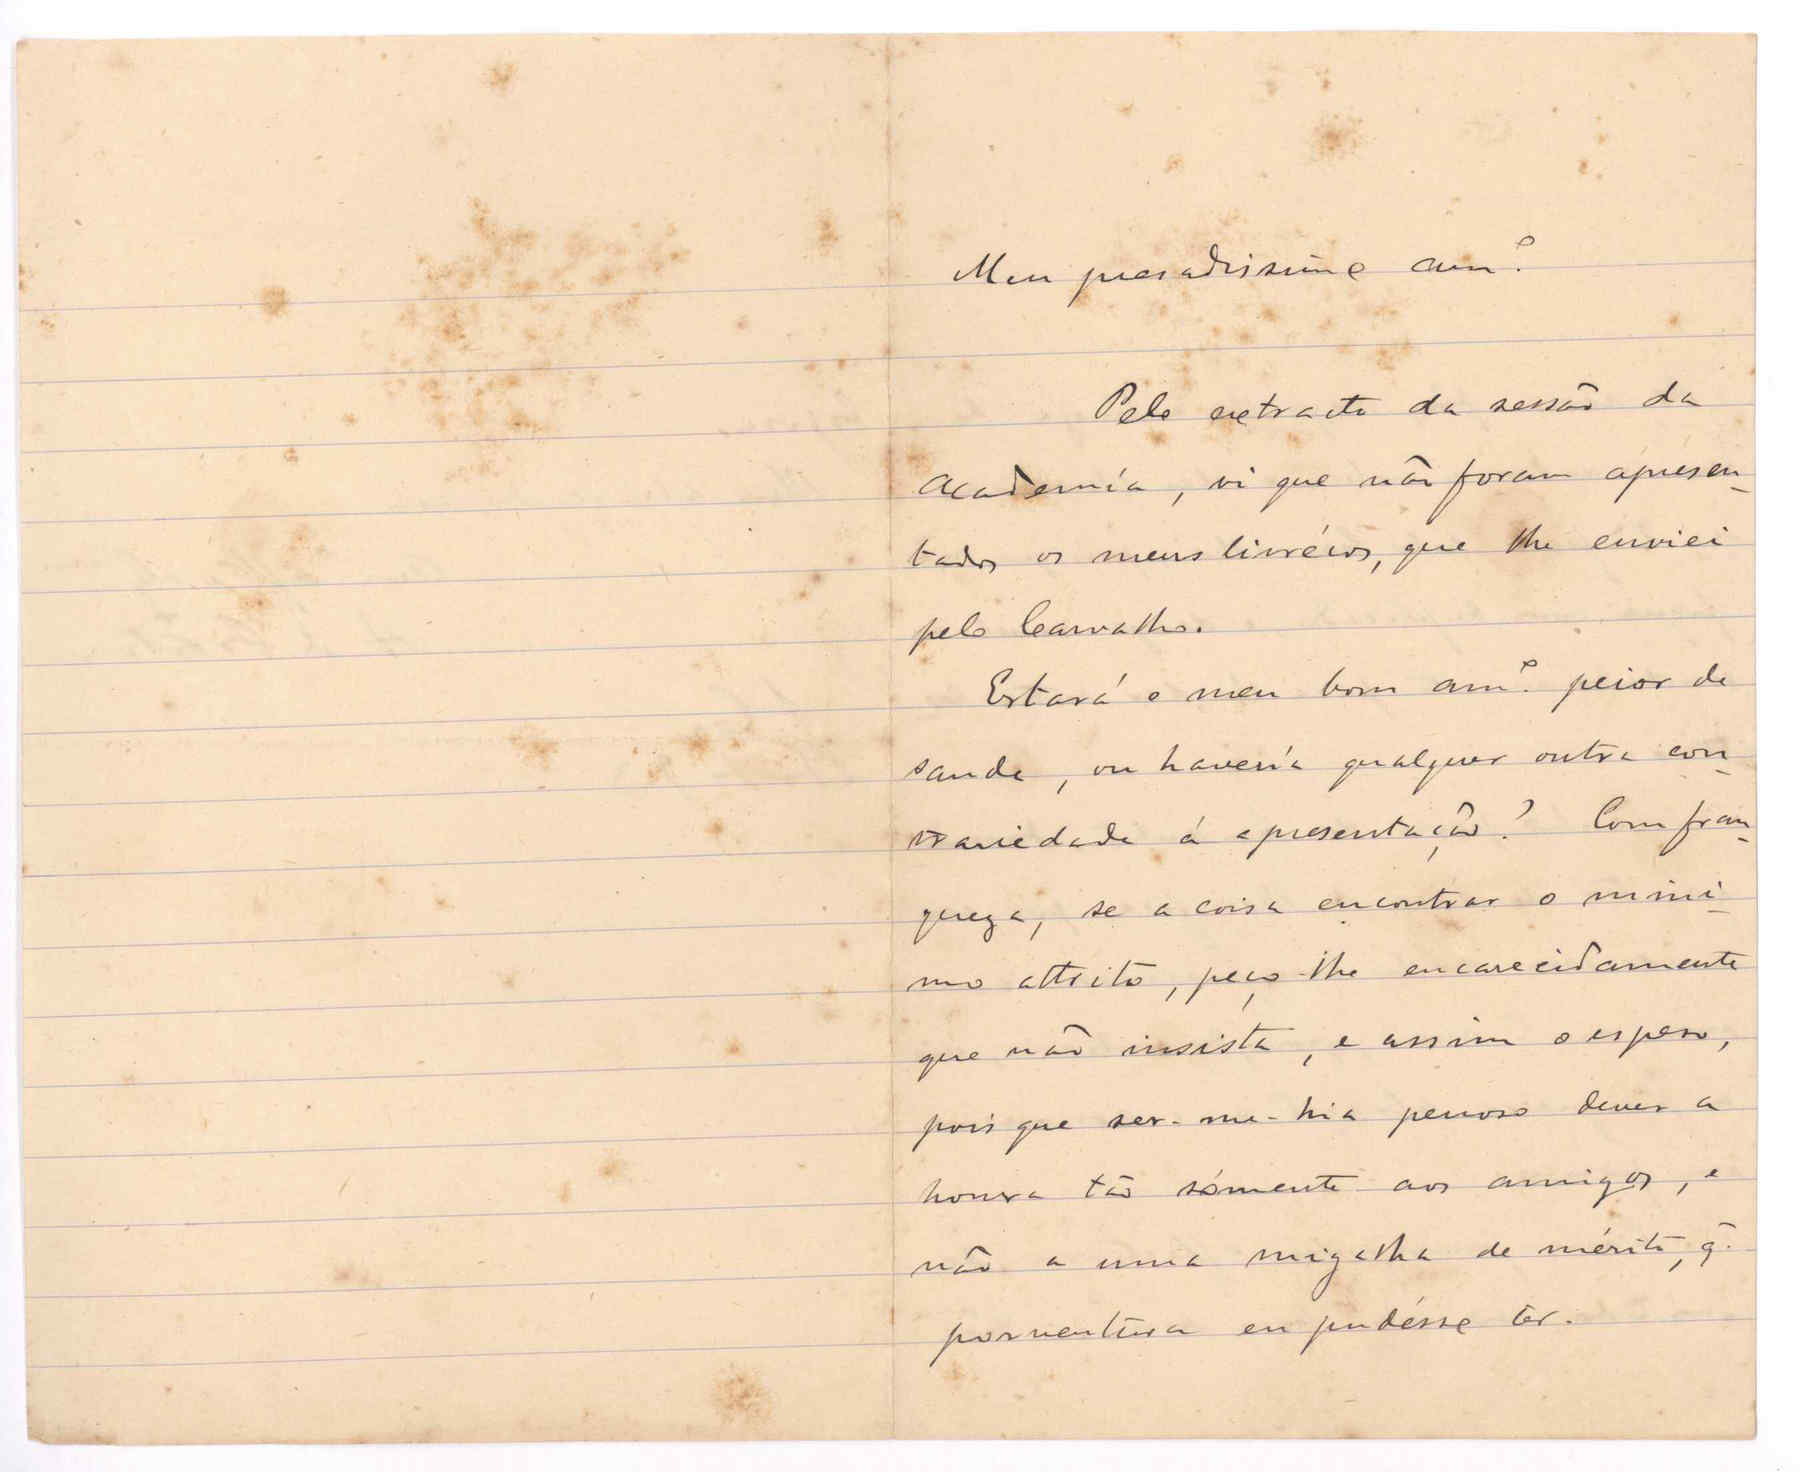 Meu presadissimo am.º
Pelo extracto da sessão da
Academía, vi que não foram apresen-
tados os meus livrécos, que lhe enviei
pelo Carvalho.
Estará o meu bom am.º peior de
saude, ou havería qualquer outra con-
trariedade á apresentação? Com fran-
queza, se a coisa encontrar o mini-
mo attrito, peço-lhe encarecidamente
que não insista, e assim o espero,
pois que ser-me-hia penoso dever a
honra tão sómente aos amigos, e
não a uma migalha de mérito, q̃.
porventura eu pudésse ter.